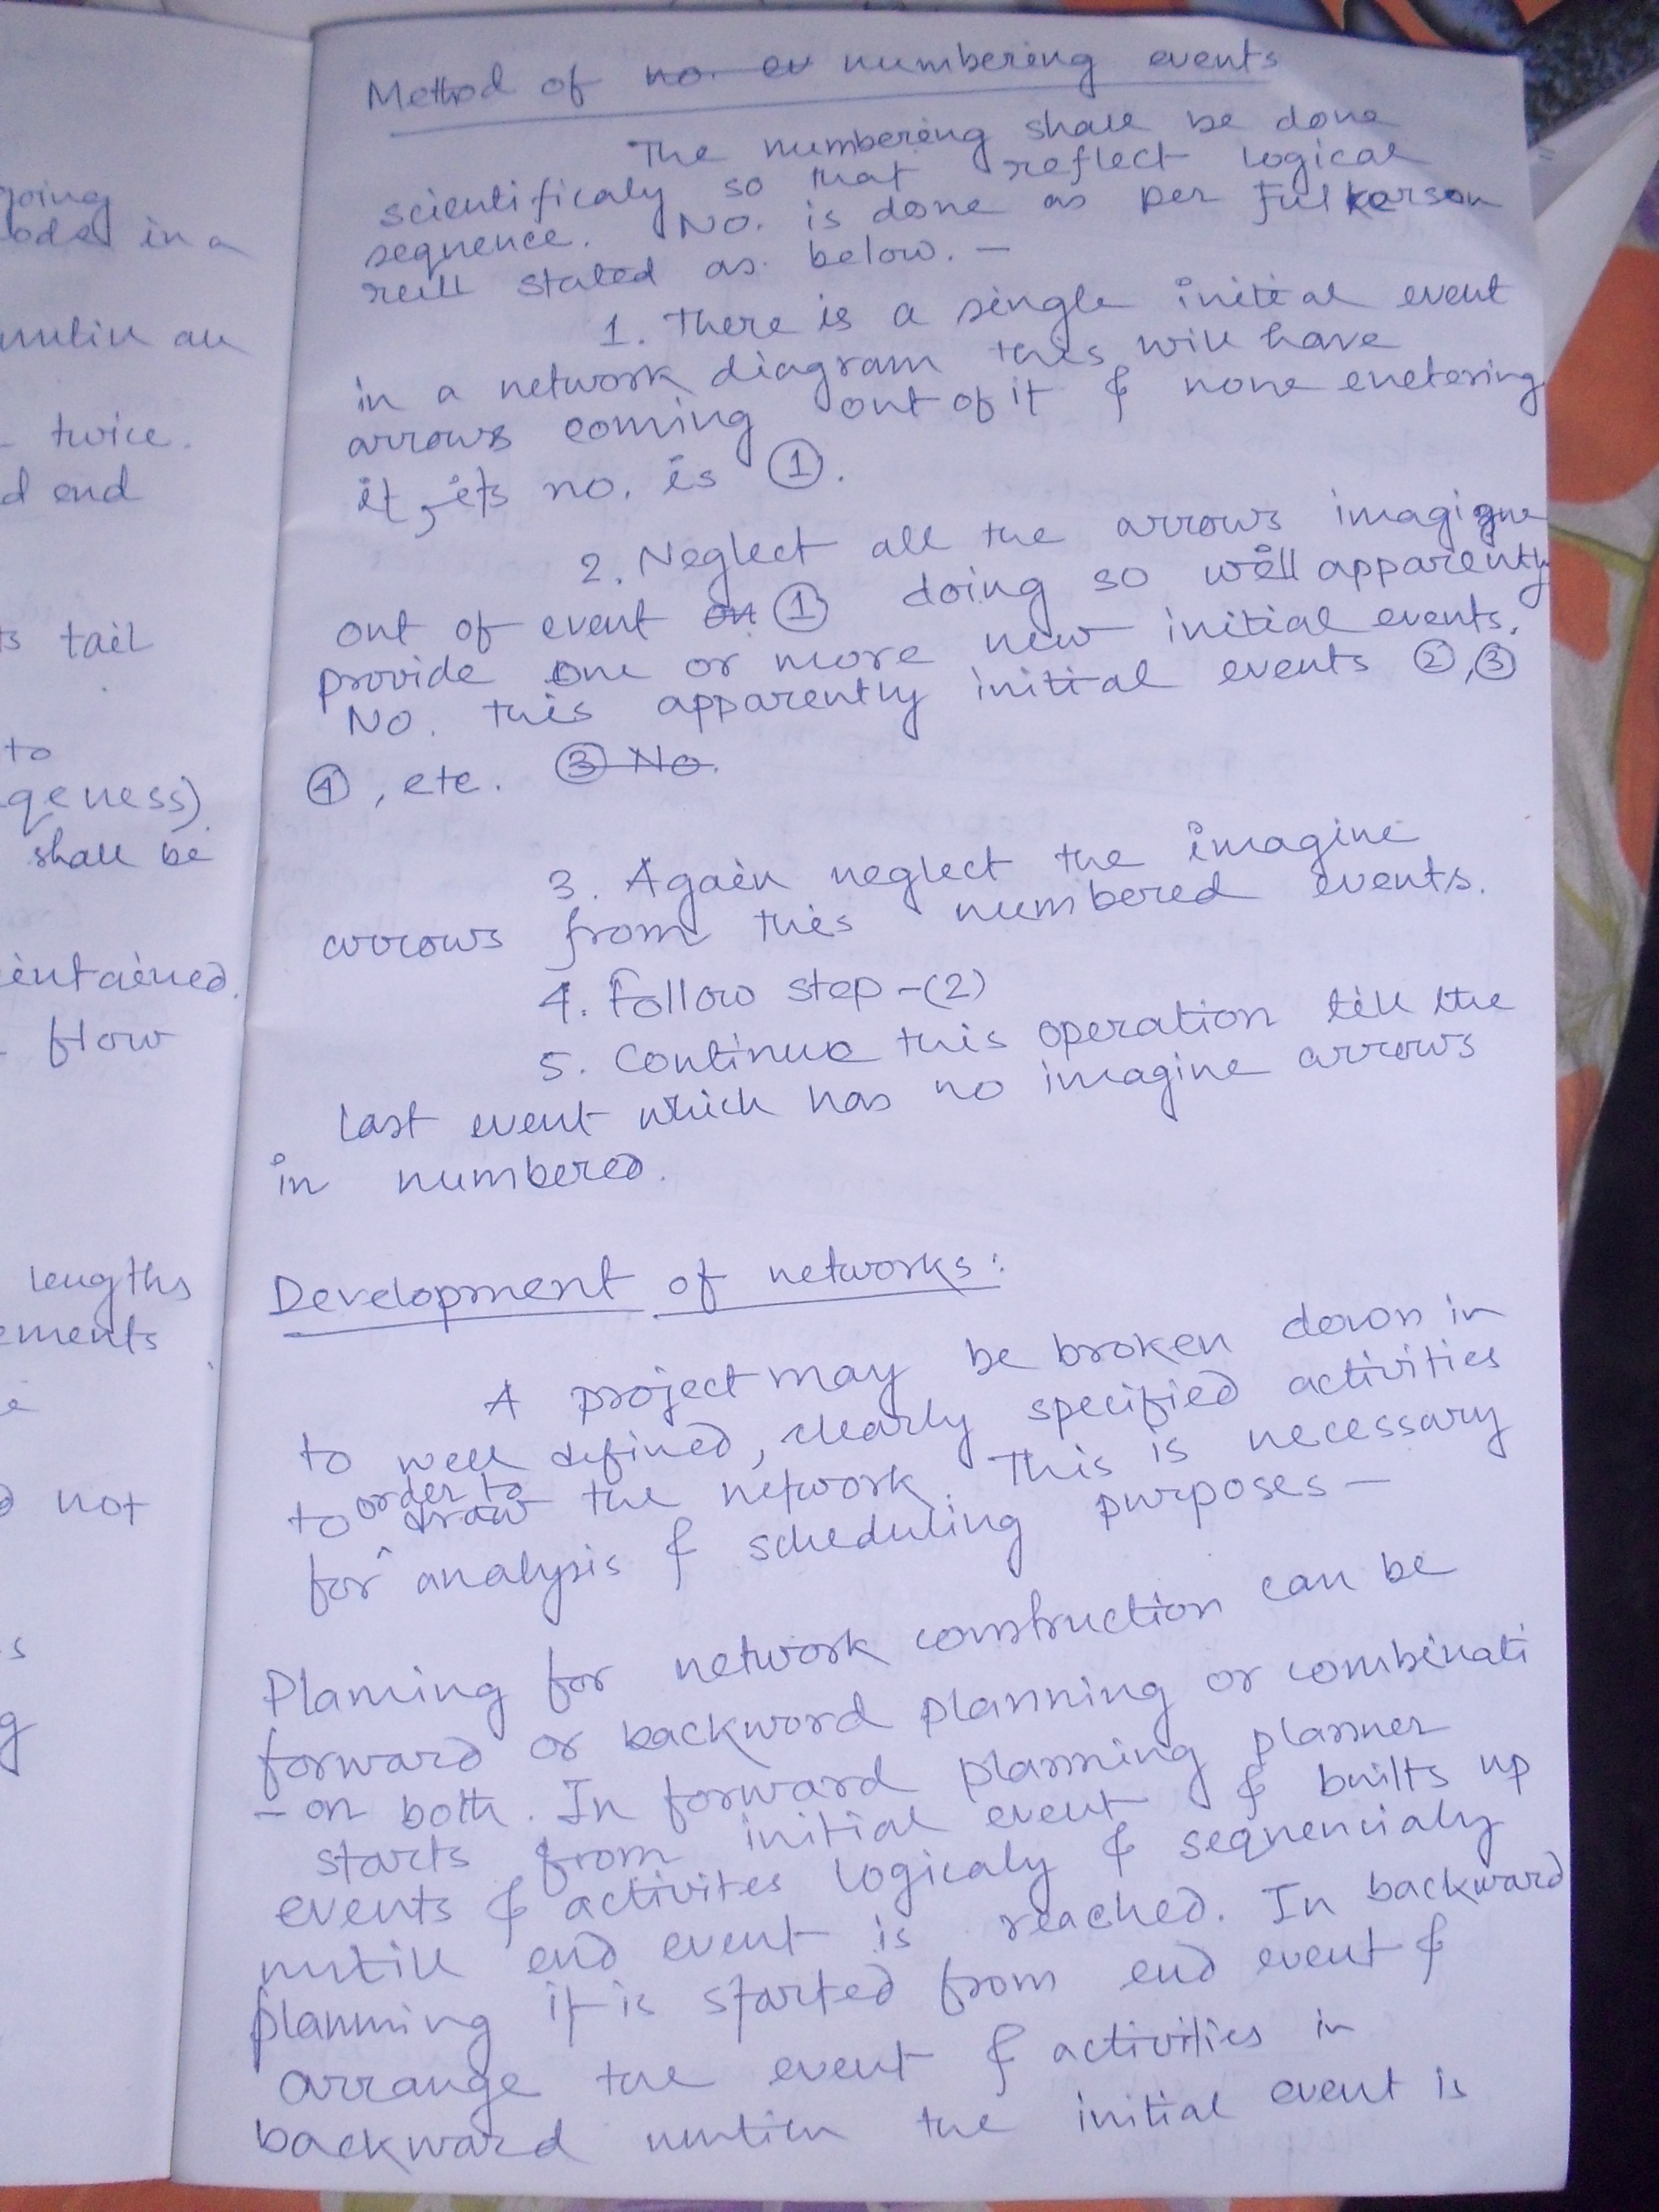 going
odes in a
untill all
twice.
d end
s tail
to
geness)
shall be
intained.
flow
lengths
ements
e
d not
s
g
Method of no. ev numbering events
The numbering shall be done
scientificaly so that reflect logical
sequence. No. is done as per Fulkerson
rull stated as below. —
1. There is a single initial event
in a network diagram this will have
arrows coming out of it & none enetering
it, its no. is ①.
2. Neglect all the arrows imagigne
out of event on ① doing so will apparently
provide one or more new initial events.
No. this apparently initial events ②,③
④, etc. ③ No.
3. Again neglect the imagine
arrows from this numbered events.
4. Follow step -(2)
5. Continue this operation till the
last event which has no imagine arrows
in numbered.
Development of networks:
A project may be broken down in
to well defined, clearly specified activities
to order to draw the network. This is necessary
for analysis & scheduling purposes —
Planning for network construction can be
forward or backword planning or combinati
- on both. In forward planning planner
starts from initial event & builts up
events & activites logicaly & sequencialy
untill end event is reached. In backward
planning it is started from end event &
arrange the event & activities in
backward untill the initial event is